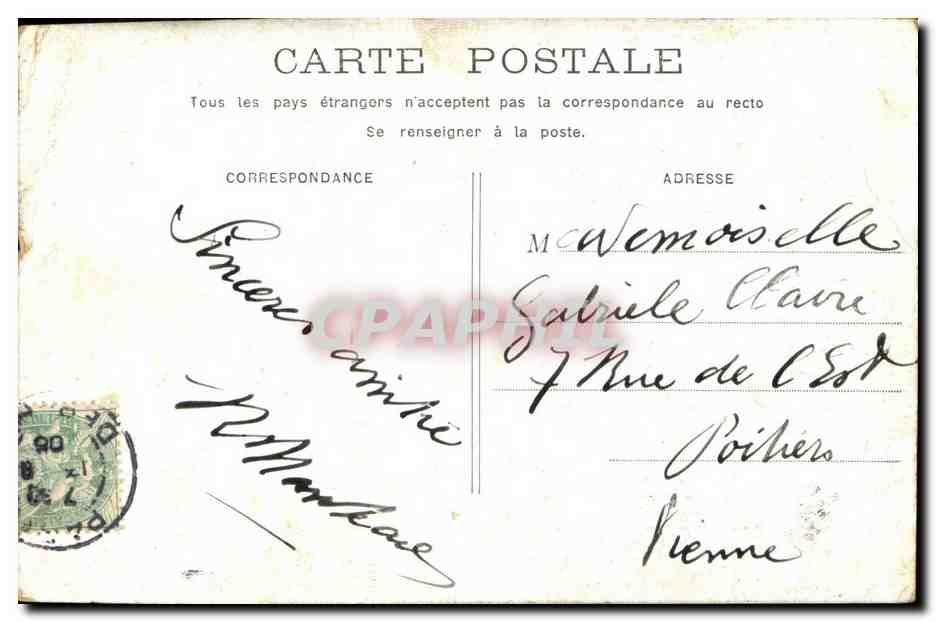 CARTE POSTALE
Tous les pays étrangers n'acceptent pas la correspondance au recto
Se renseigner à la poste.
CORRESPONDANCE
Sincere amitié
ADRESSE
Mademoiselle
Gabriele Claire
7 Rue de l'Est
Poitiers
Vienne
CPAPHIL